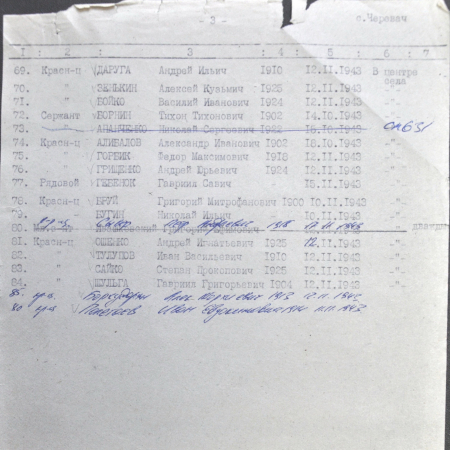 - 3 - с.Черевач
1 : 2 : 3 : 4 : 5 : 6 : 7
69. Красн-ц ДАРУГА Андрей Ильич 1910 12.11.1943 В центре села
70. " ЗЕНЬКИН Алексей Кузьмич 1925 12.11.1943 -"-
71. " БОЙКО Василий Иванович 1924 12.11.1943 -"-
72. Сержант БОРНИН Тихон Тихонович 1902 14.10.1943 -"-
73. " АНАНЧЕНКО Николай Сергеевич 1922 18.10.1943
74. Красн-ц АЛИВАЛОВ Александр Иванович 1902 18.10.1943 -"-
75. " ГОРБИК Федор Максимович 1918 12.11.1943 -"-
76. " ГРИЩЕНКО Андрей Юрьевич 1924 12.11.1943 -"-
77. Рядовой ГРЕБЕНЮК Гавриил Савич 15.11.1943 -"-
78. Красн-ц БРУЙ Григорий Митрофанович 1900 10.11.1943 -"-
79. " БУГИН Николай Ильич 10.11.1943 -"-
80.
81. Красн-ц ОШЕНКО Андрей Игнатьевич 1925 12. -"-
82. " ТУЛУПОВ Иван Васильевич 1910 12.11.1943 -"-
83. " САЙКО Степан Прокопович 1925 12.11.1943 -"-
84. " ШУЛЬГА Гавриил Григорьевич 1904 12.11.1943 -"-
85. 1913 12.11.1943
11.11.1943